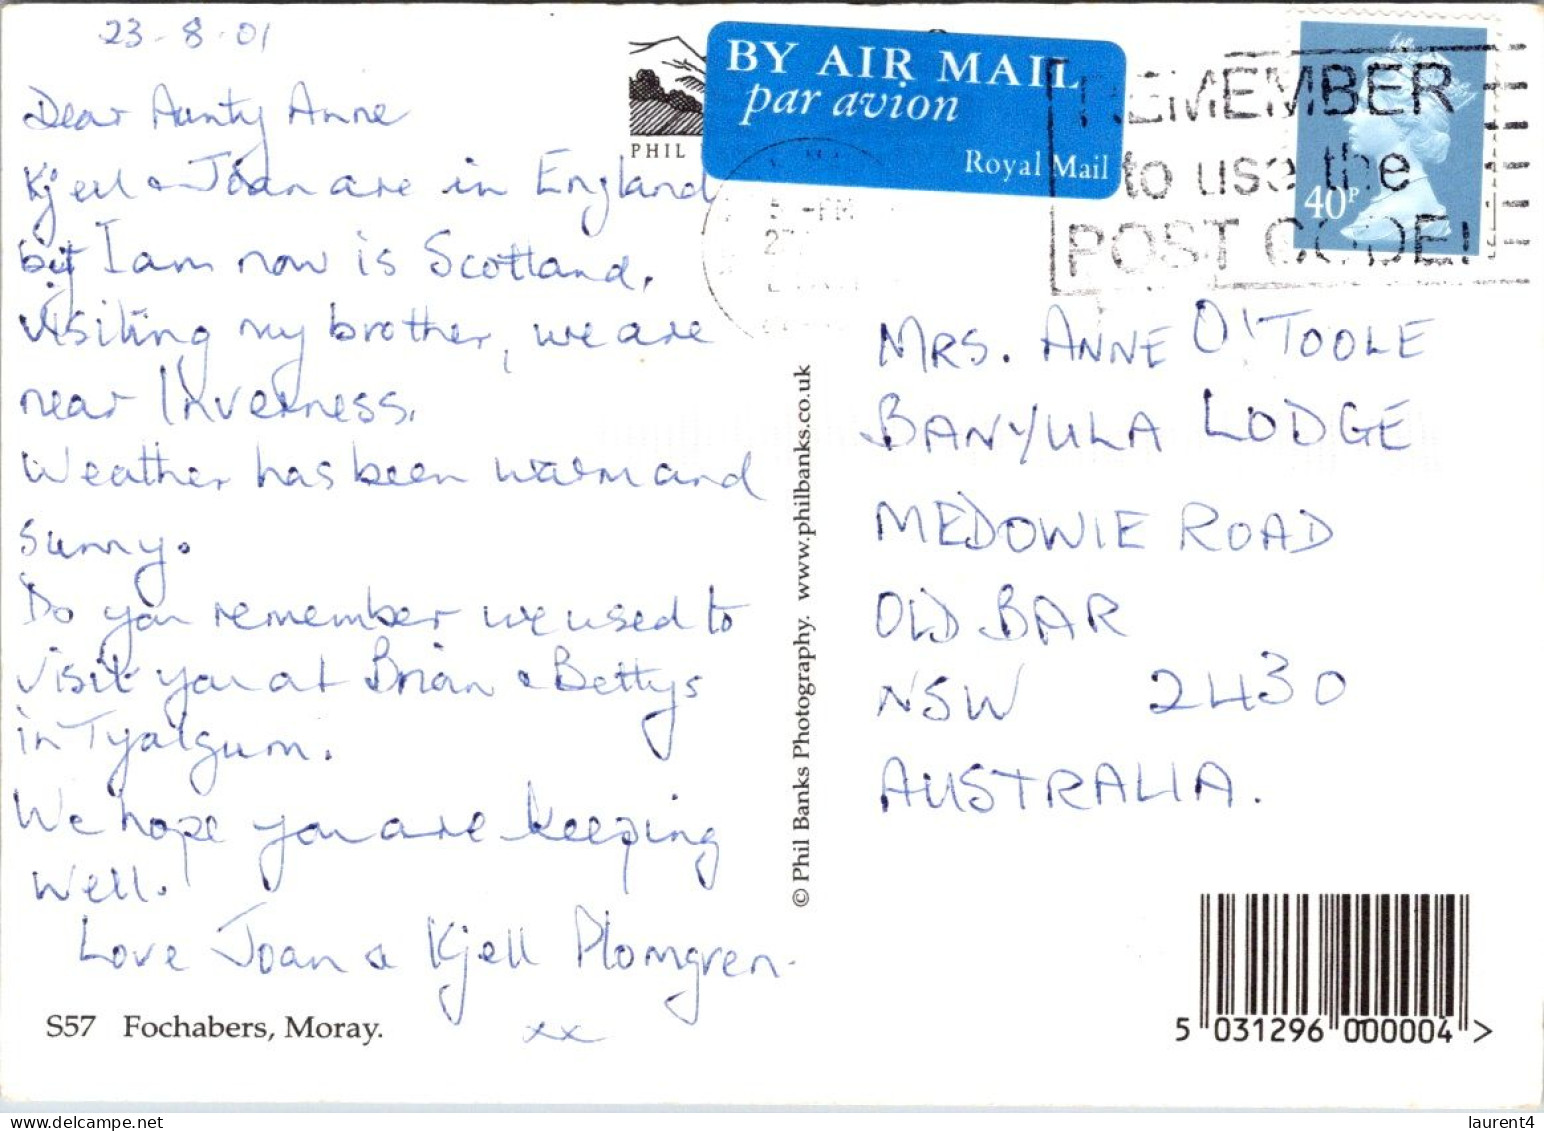 23-8-01
Dear Aunty Anne
Kjell & Joan are in England
but I am now is Scotland.
Visiting my brother, we are
near Inverness.
Weather has been warm and
sunny.
Do you remember we used to
visit you at Brian & Bettys
in Tyalgum.
We hope you are keeping
well.
Love Joan & Kjell Plomgren.
xx
S57 Fochabers, Moray.
PHIL
BY AIR MAIL
par avion
Royal Mail
5 -PM
27
REMEMBER
to use the
POST CODE!
40P
© Phil Banks Photography. www.philbanks.co.uk
MRS. ANNE O'TOOLE
BANYULA LODGE
MEDOWIE ROAD
OLD BAR
NSW 2430
AUSTRALIA.
5 031296 000004 >
laurent4